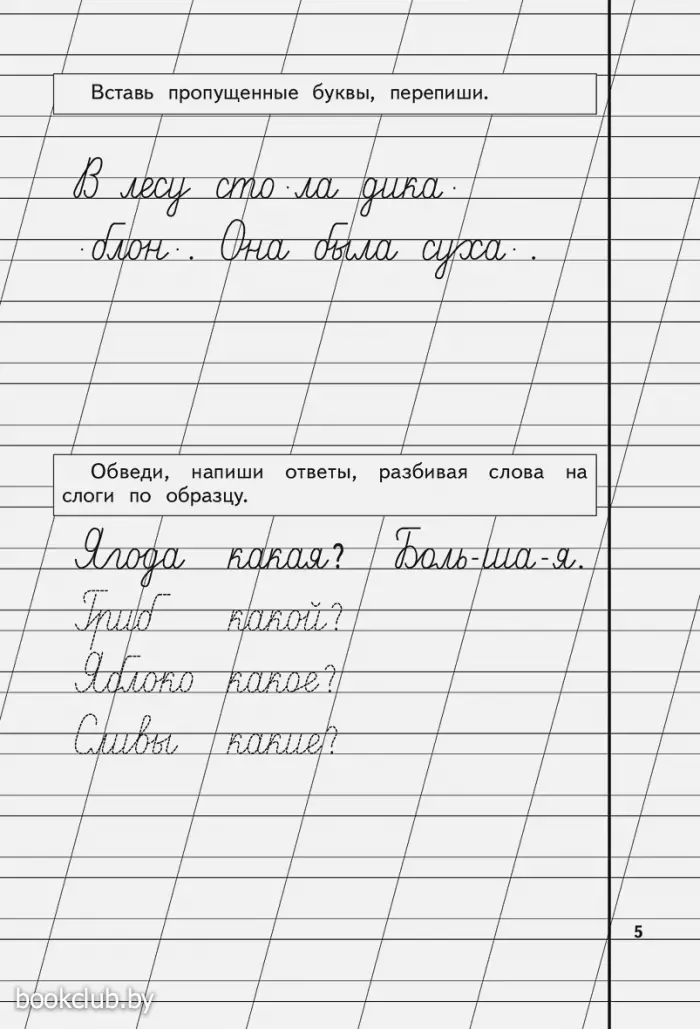 Вставь пропущенные буквы, перепиши.
В лесу сто·ла дика·
·блон·. Она была суха·.
Обведи, напиши ответы, разбивая слова на
слоги по образцу.
Ягода какая? Боль-ша-я.
Гриб какой?
Яблоко какое?
Сливы какие?
5
bookclub.by